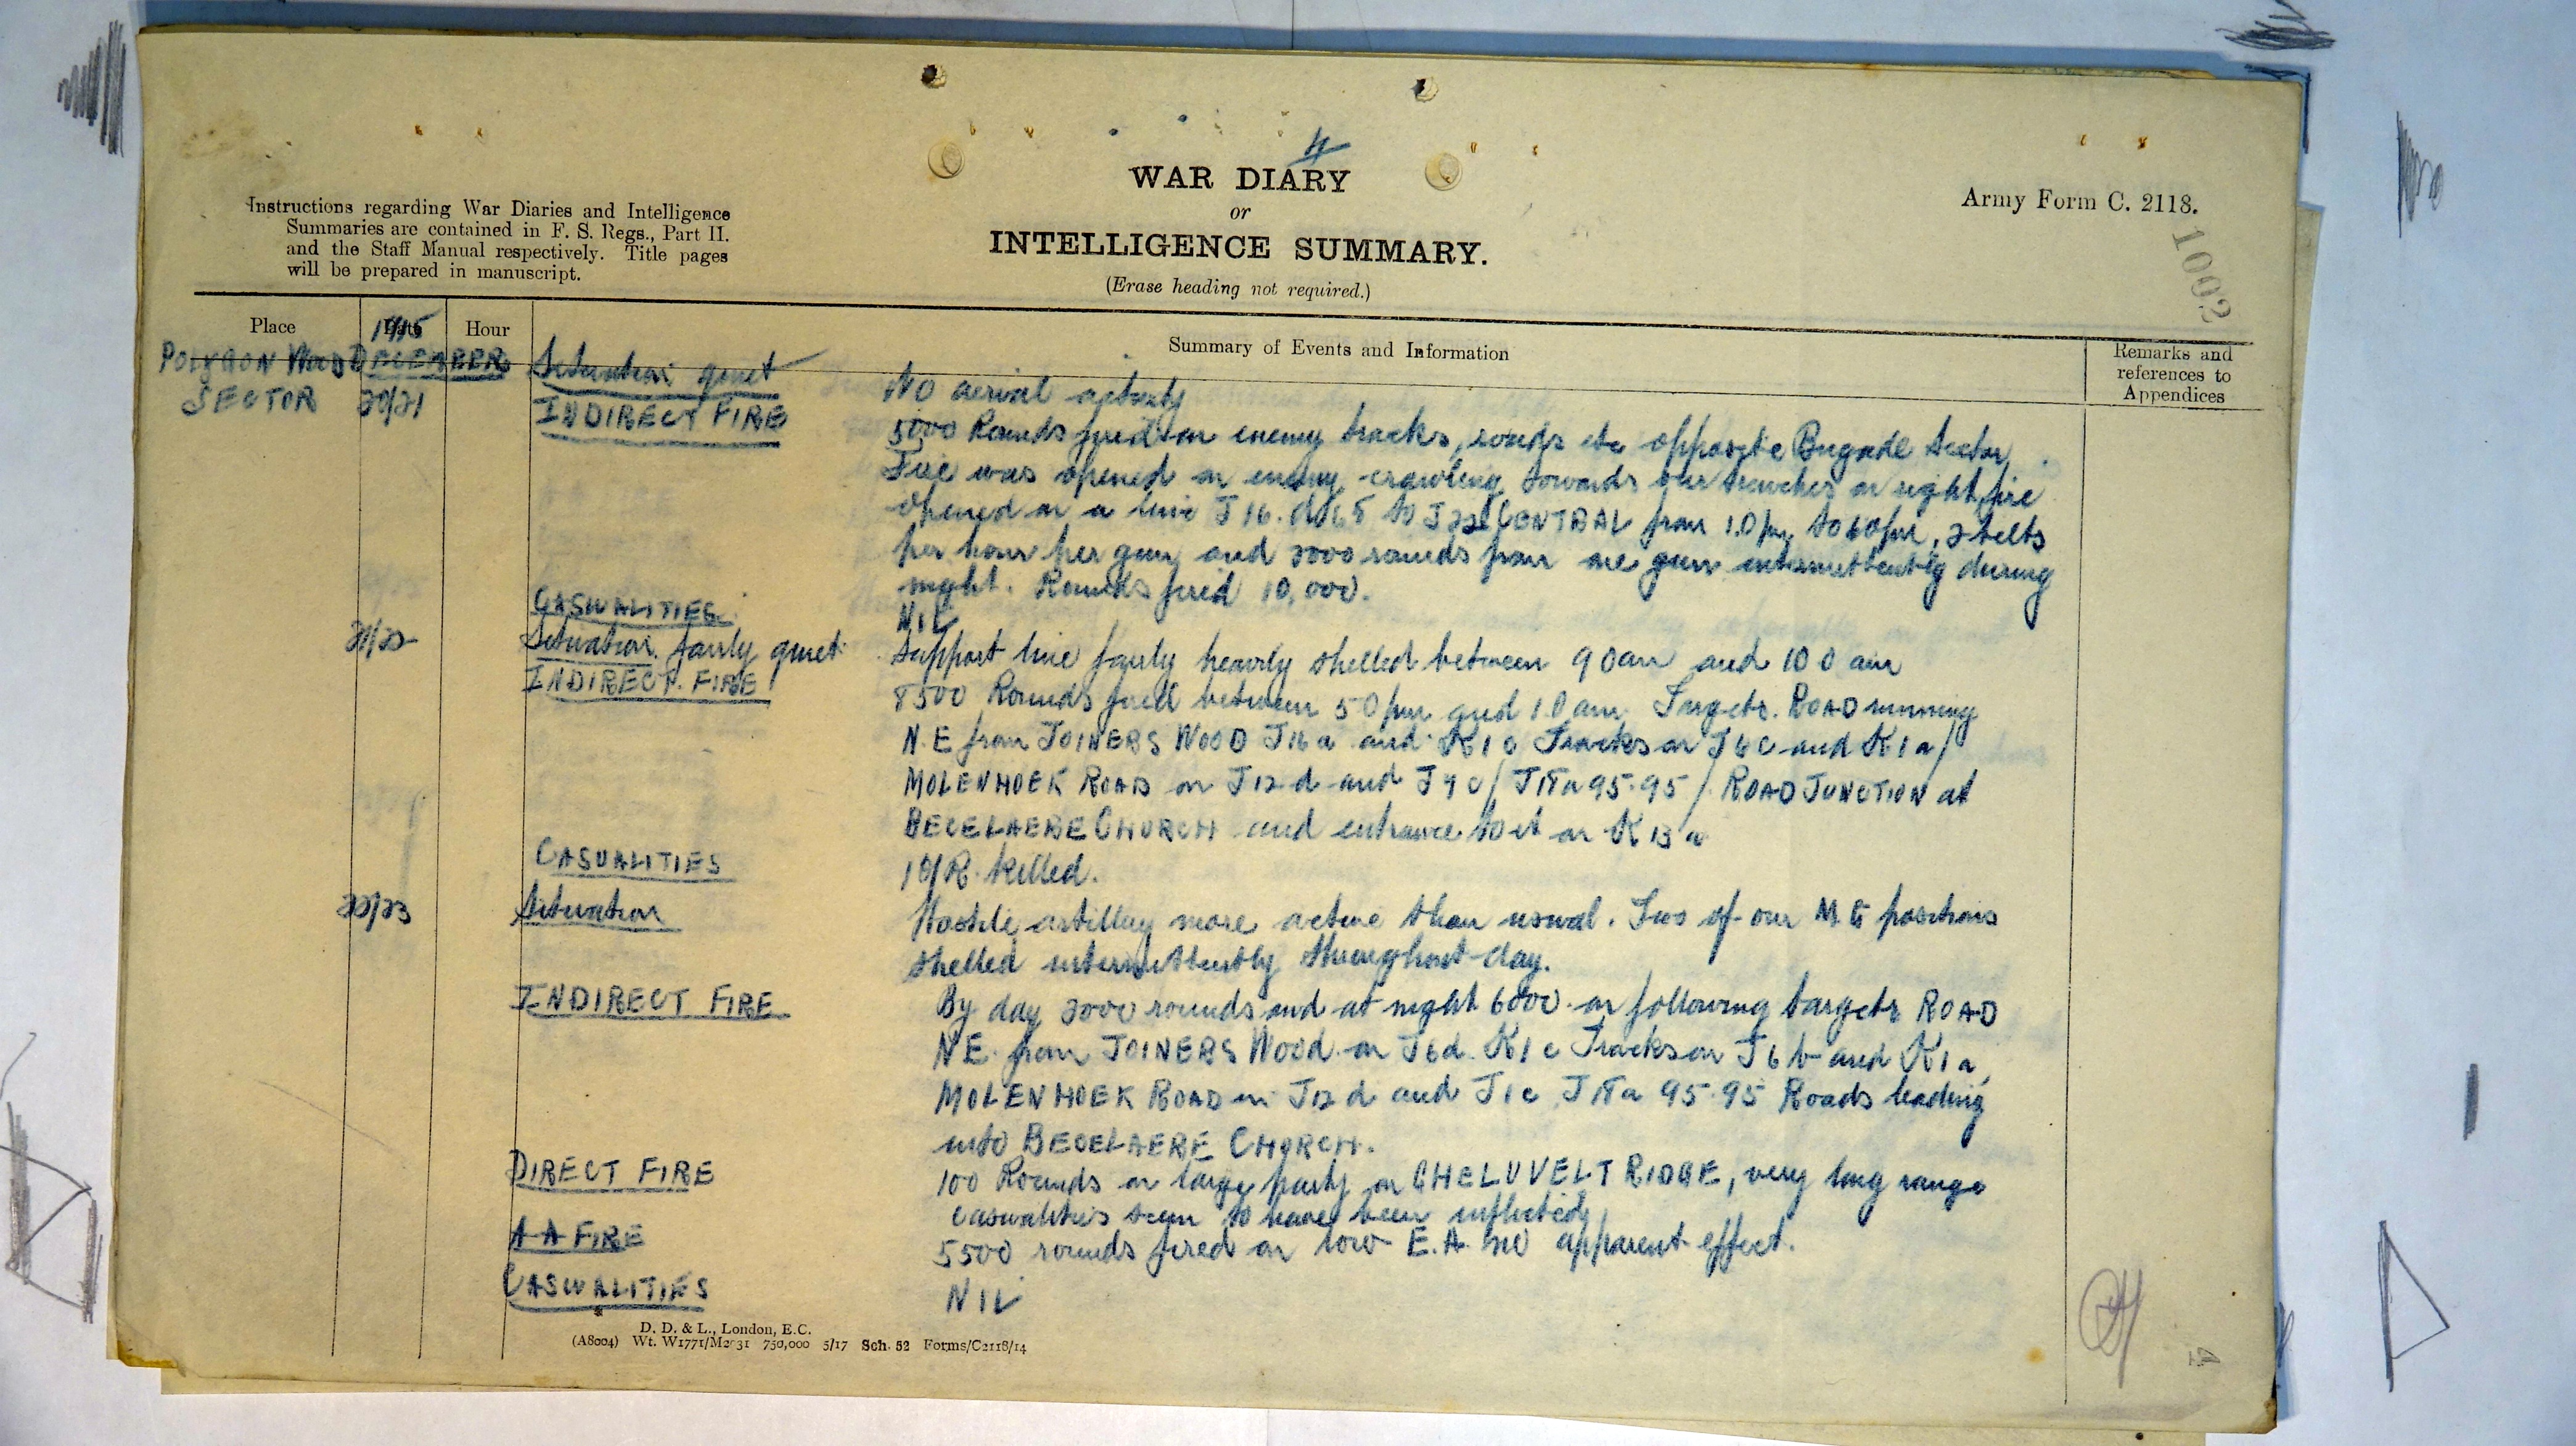 4
WAR DIARY
or
INTELLIGENCE SUMMARY.
(Erase heading not required.)
Instructions regarding War Diaries and Intelligence
Summaries are contained in F. S. Regs., Part II.
and the Staff Manual respectively. Title pages
will be prepared in manuscript.
Army Form C. 2118.
1002
Place Date Hour Summary of Events and Information Remarks and references to Appendices
POLYGON WOOD DECEMBER Situation quiet No aerial activity
SECTOR 20/21 INDIRECT FIRE 5000 Rounds fired on enemy tracks, roads etc opposite Brigade Sector.
Fire was opened on enemy crawling towards our trenches on right, fire
opened on a line J 16. d to J 22 CENTRAL from 1.0 pm to 6.0 pm, 2 belts
per hour per gun and 2000 rounds from one gun intermittently during
night. Rounds fired 10,000.
CASUALITIES. NIL
21/22 Situation fairly quiet. Support line fairly heavily shelled between 9 0 am and 10 0 am
INDIRECT FIRE 8500 Rounds fired between 5 0 pm and 1.0 am. Targets. ROAD running
N.E from JOINERS WOOD J 16 a and K 1 c Tracks on J 6 c and K 1 a/
MOLENHOEK ROAD on J 12 d and J 7 c/ J 18 a 95.95/ ROAD JUNCTION at
BECELAERE CHURCH and entrance to it on K 13 a
CASUALITIES 1 O/R killed.
22/23 Situation Hostile artillery more active than usual. Two of our M G positions
shelled intermittently throughout day.
INDIRECT FIRE By day 2000 rounds and at night 6000 on following targets ROAD
N E from JOINERS WOOD on J 6 d. K 1 c Tracks on J 6 b and K 1 a,
MOLENHOEK ROAD on J 12 d and J 1 c J 18 a 95.95 Roads leading
into BECELAERE CHURCH.
DIRECT FIRE 100 Rounds on large party on GHELUVELT RIDGE, very long range
casualities seem to have been inflicted,
A A FIRE 5500 rounds fired on low E.A. no apparent effect.
CASUALITIES NIL
D. D. & L., London, E.C.
(A8004) Wt. W1771/M2031 750,000 5/17 Sch. 52 Forms/C2118/14